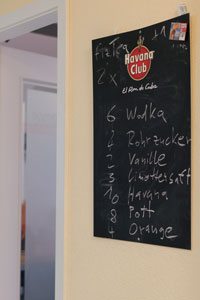 Freitag +1
2x
Havana
Club
El Ron de Cuba
6 Wodka
2 Rohrzucker
2 Vanille
3 Limettensaft
10 Havana
8 Pott
4 Orange